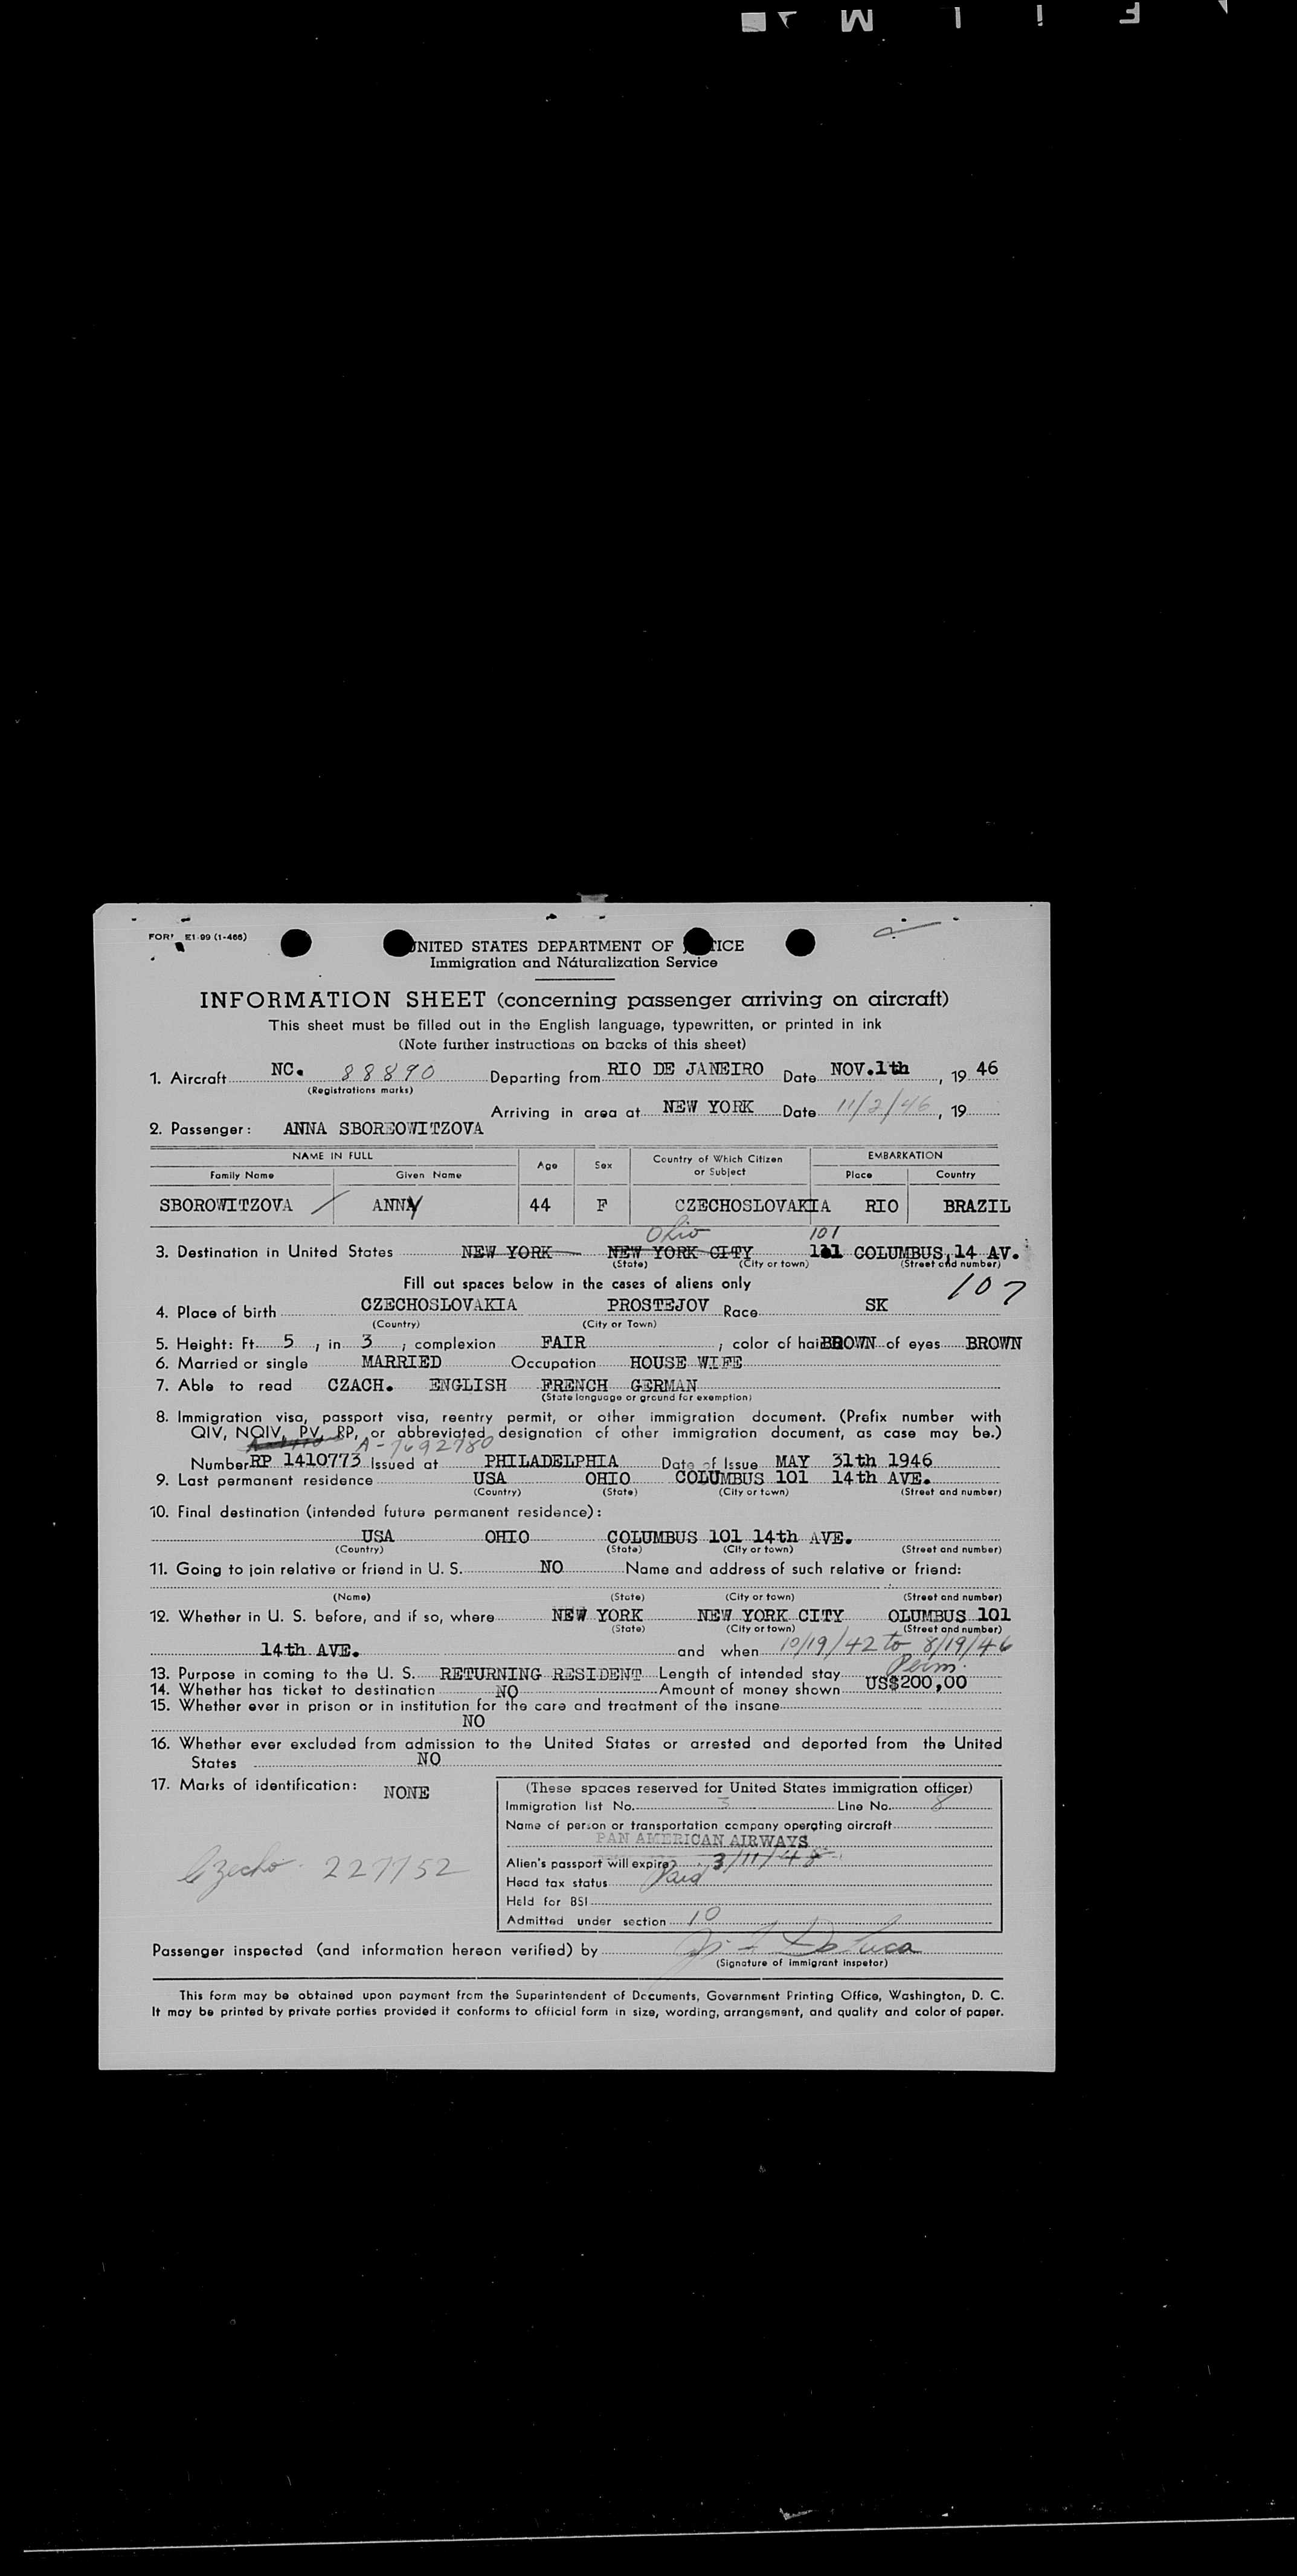 F I L M
FORM E1-99 (1-466)
UNITED STATES DEPARTMENT OF JUSTICE
Immigration and Naturalization Service
INFORMATION SHEET (concerning passenger arriving on aircraft)
This sheet must be filled out in the English language, typewritten, or printed in ink
(Note further instructions on backs of this sheet)
1. Aircraft NC. 88890 Departing from RIO DE JANEIRO Date NOV.1th, 19 46
(Registrations marks)
Arriving in area at NEW YORK Date 11/2/46, 19
2. Passenger: ANNA SBOREOWITZOVA
NAME IN FULL Age Sex Country of Which Citizen or Subject EMBARKATION
Family Name Given Name Place Country
SBOROWITZOVA ANNY 44 F CZECHOSLOVAKIA RIO BRAZIL
Ohio 101
3. Destination in United States NEW YORK NEW YORK CITY 101 COLUMBUS, 14 AV.
(State) (City or town) (Street and number)
Fill out spaces below in the cases of aliens only
107
4. Place of birth CZECHOSLOVAKIA PROSTEJOV Race SK
(Country) (City or Town)
5. Height: Ft. 5, in 3; complexion FAIR; color of hair BROWN of eyes BROWN
6. Married or single MARRIED Occupation HOUSE WIFE
7. Able to read CZACH. ENGLISH FRENCH GERMAN
(State language or ground for exemption)
8. Immigration visa, passport visa, reentry permit, or other immigration document. (Prefix number with
QIV, NQIV, PV, RP, or abbreviated designation of other immigration document, as case may be.)
A-7692780
Number RP 1410773 Issued at PHILADELPHIA Date of Issue MAY 31th 1946
9. Last permanent residence USA OHIO COLUMBUS 101 14th AVE.
(Country) (State) (City or town) (Street and number)
10. Final destination (intended future permanent residence):
USA OHIO COLUMBUS 101 14th AVE.
(Country) (State) (City or town) (Street and number)
11. Going to join relative or friend in U. S. NO Name and address of such relative or friend:
(Name) (State) (City or town) (Street and number)
12. Whether in U. S. before, and if so, where NEW YORK NEW YORK CITY OLUMBUS 101
(State) (City or town) (Street and number)
14th AVE. and when 10/19/42 to 8/19/46
13. Purpose in coming to the U. S. RETURNING RESIDENT Length of intended stay Perm.
14. Whether has ticket to destination NO Amount of money shown US$200,00
15. Whether ever in prison or in institution for the care and treatment of the insane
NO
16. Whether ever excluded from admission to the United States or arrested and deported from the United
States NO
17. Marks of identification: NONE
(These spaces reserved for United States immigration officer)
Immigration list No. 3 Line No. 8
Name of person or transportation company operating aircraft
PAN AMERICAN AIRWAYS
Czecho. 227752
Alien's passport will expire 3/11/48
Head tax status Paid
Held for BSI
Admitted under section 10
Passenger inspected (and information hereon verified) by De Luca
(Signature of immigrant inspetor)
This form may be obtained upon payment from the Superintendent of Documents, Government Printing Office, Washington, D. C.
It may be printed by private parties provided it conforms to official form in size, wording, arrangement, and quality and color of paper.